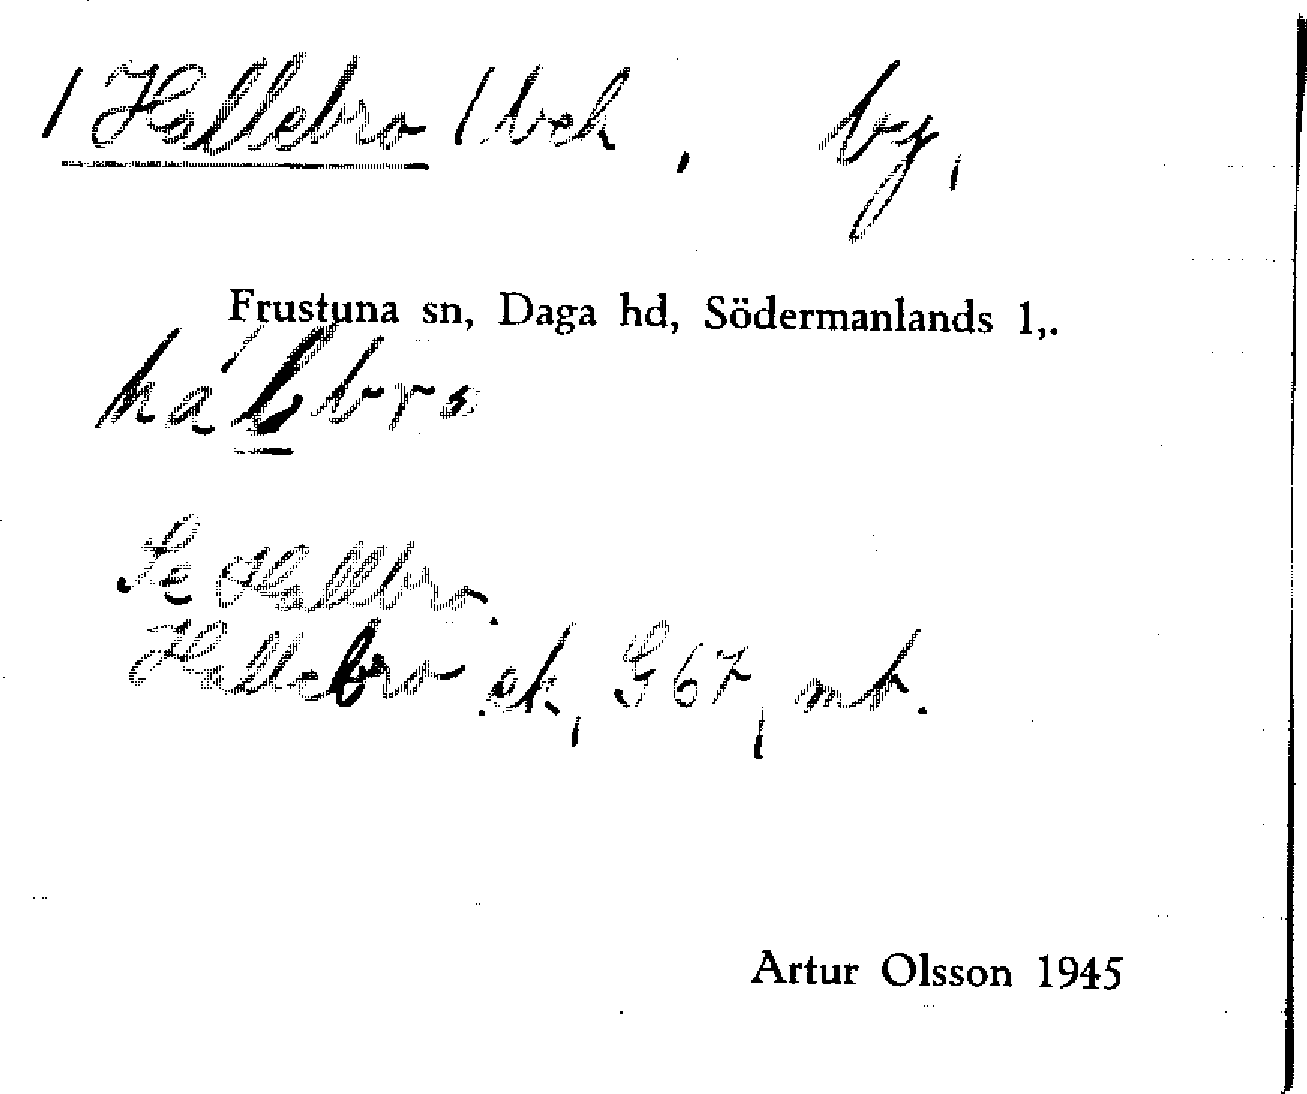 /Hallebro / bek, by,
Frustuna sn, Daga hd, Södermanlands l,.
ha'lbro
Se Hallbro.
Hallebro ek, G 67, mt.
Artur Olsson 1945